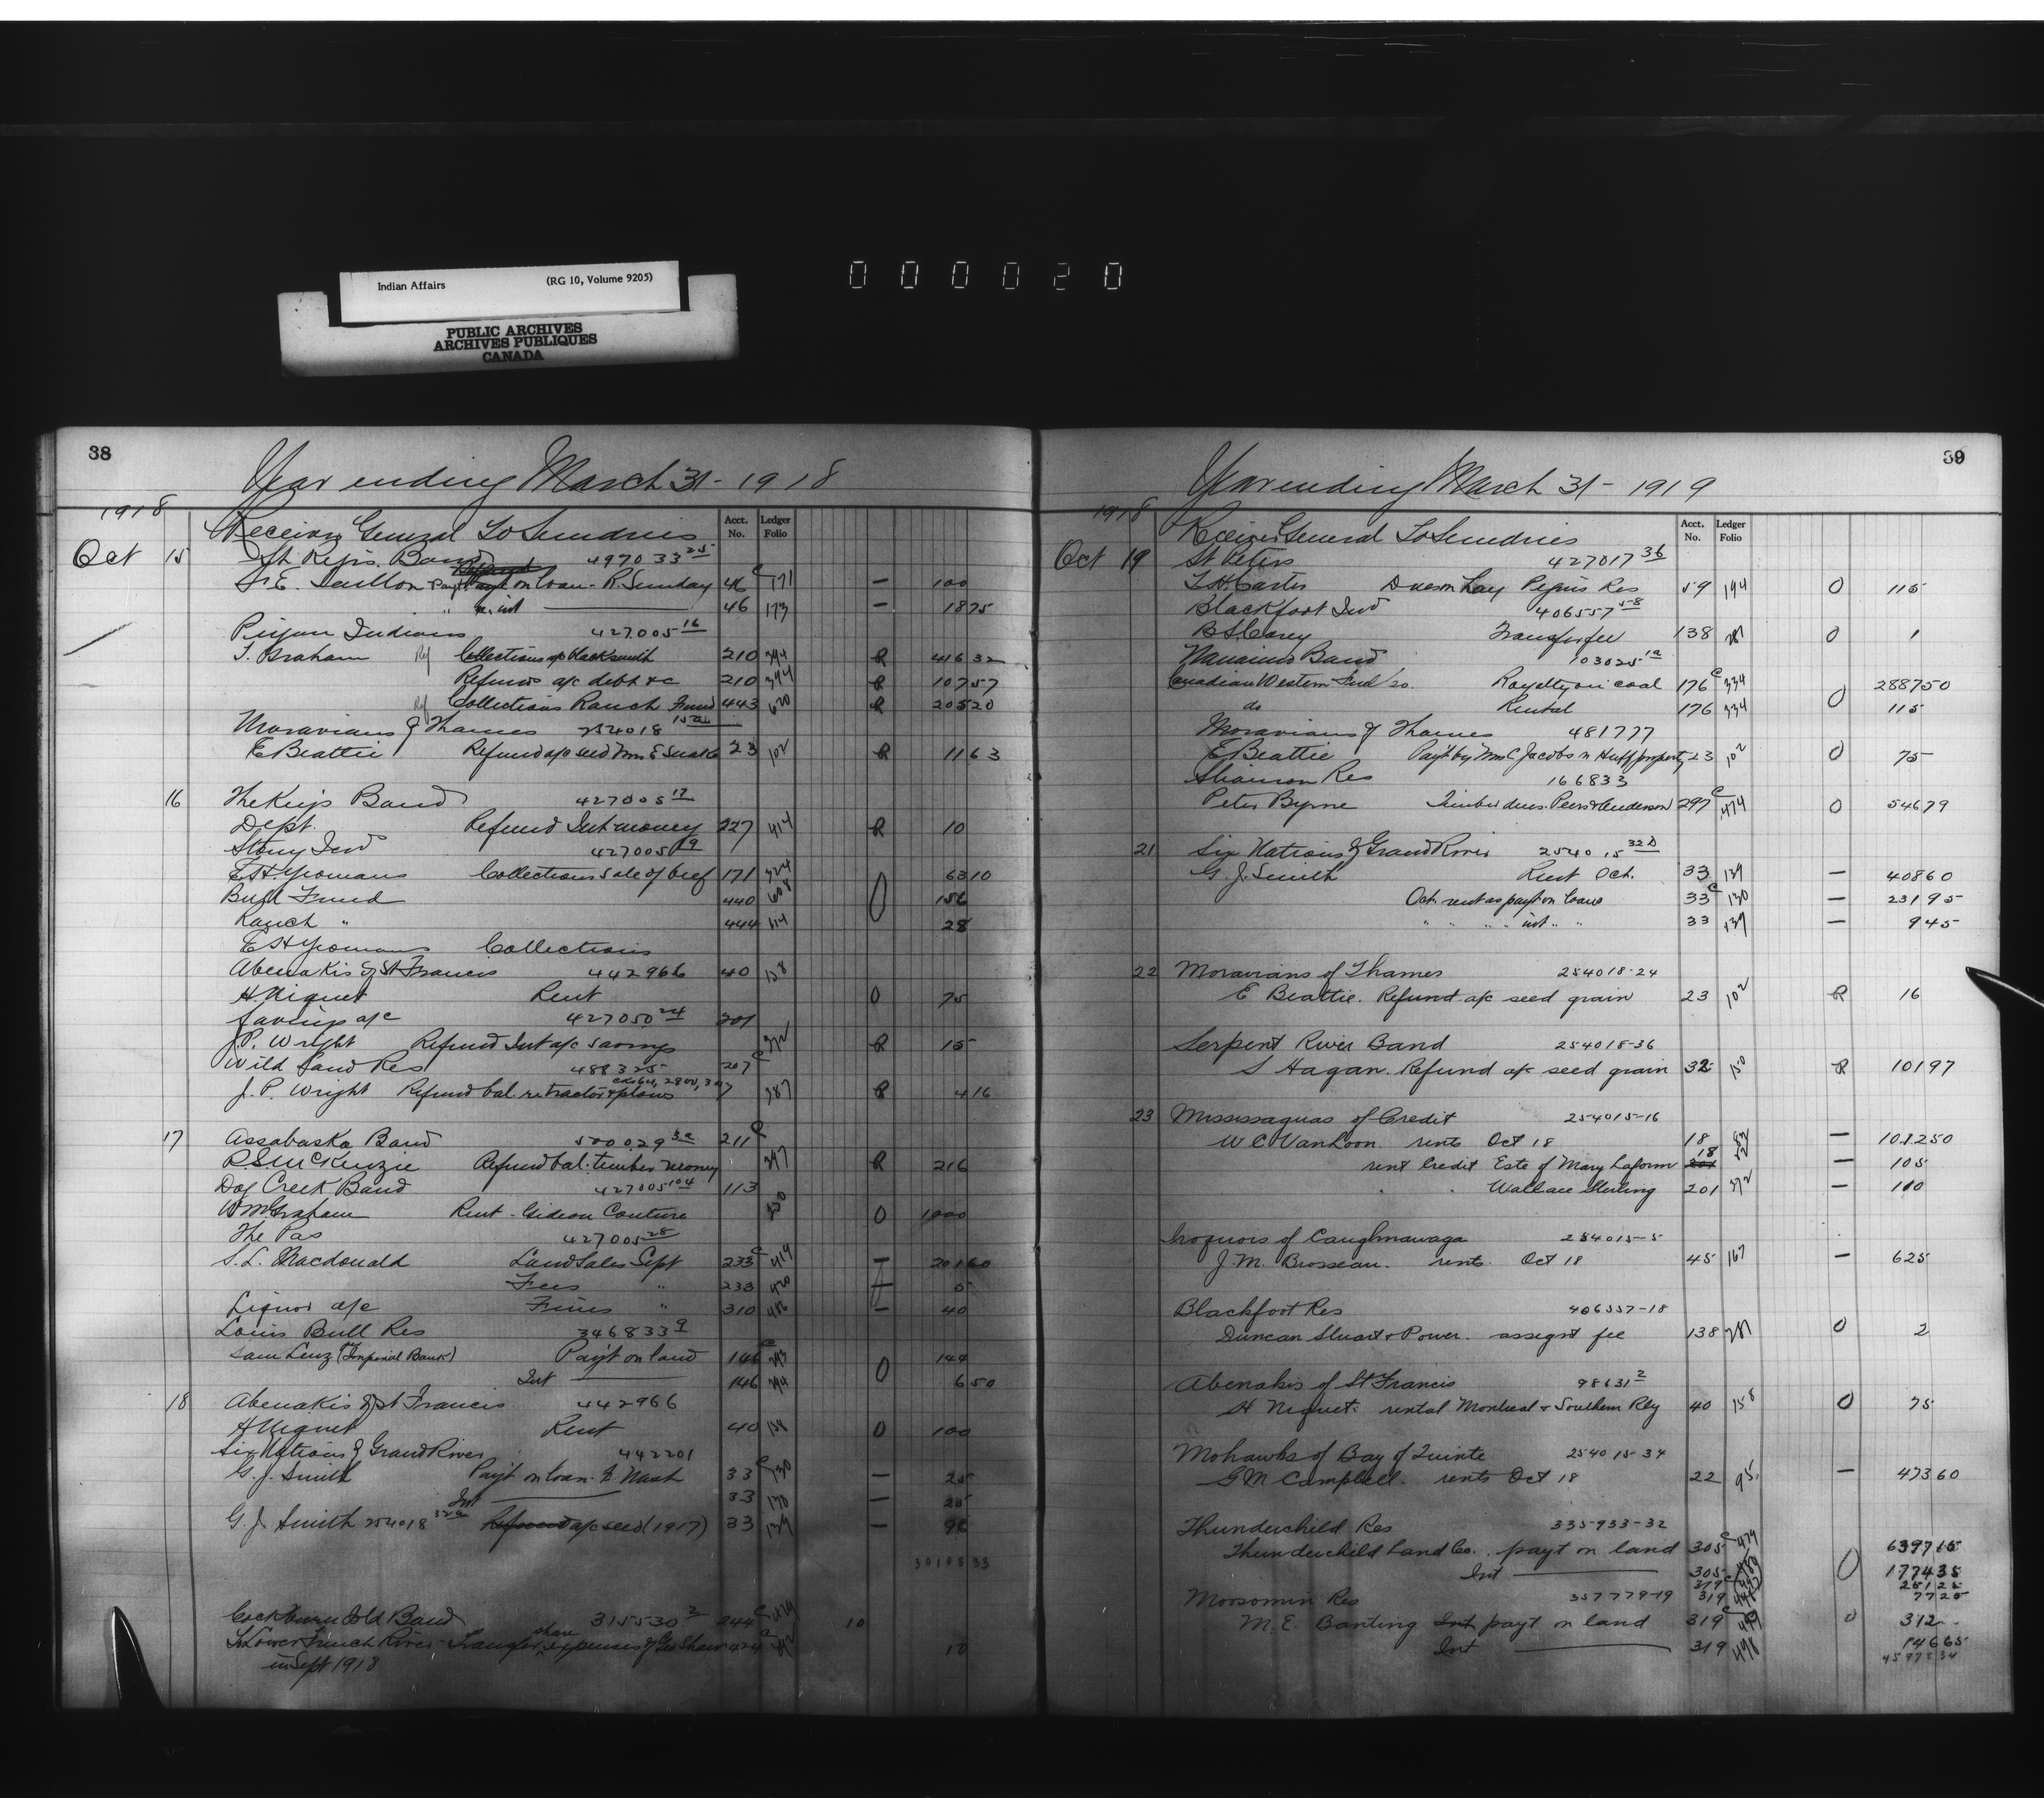 Indian Affairs (RG 10, Volume 9205)
PUBLIC ARCHIVES
ARCHIVES PUBLIQUES
CANADA
000020
38
Year ending March 31 - 1918
1918
Receiver General To Sundries
Acct. No. Ledger Folio
Oct 15 St. Regis Band 497033 25
F. E. Taillon Payt on loan - R. Sunday 46 c 171 — 100
" " int 46 173 — 18 75
Peigan Indians 427005 16
T. Graham Ref Collections a/c blacksmith 210 344 R 416 32
Refund a/c debt &c 210 344 R 107 57
Ref Collections Ranch Fund 443 620 R 205 20
Moravians of Thames 254018 15a
E Beattie Refund a/c seed Mrs E Snake 23 102 R 11 63
16 The Key's Band 427005 17
Dept. Refund Int money 227 414 R 10
Stony Ind 427005 19
E. H. Yeomans Collections sale of beef 171 324 63 10
Bull Fund 440 608 0 156
Ranch " 444 614 28
E H Yeomans Collections
Abenakis of St Francis 442966 40 158
H. Niquet Rent 0 75
Savings a/c 427050 24 201
J. P. Wright Refund Int a/c savings 372 R 15
Wild Land Res 488325 207 c
J. P. Wright Refund bal. re tractor & plows 387 R 4 16
17 Assabaska Band 500029 3a 211
R S McKenzie Refund bal. timber money 347 R 216
Dog Creek Band 427005 104 113
W M Graham Rent - Gideon Couture 250 0 1000
The Pas 427005 28
S. L. Macdonald Land Sales Sept 233 c 419 — 201 60
Fees " 233 420 — 5
Liquor a/c Fines " 310 486 — 40
Louis Bull Res 346833 9
Sam Lenz (per Imperial Bank) Payt on land 146 c 293 0 144
Int 146 294 6 50
18 Abenakis of St Francis 442966
H Niquet Rent 40 158 0 100
Six Nations of Grand River 442201
G. J. Smith Payt on loan. F. Nash 33 c 130 — 25
Int 33 130 — 25
G. J. Smith 254018 32a Refund a/c seed (1917) 33 129 — 96
3010 8 33
Cockburn Isld Band 315530 2 244 c 10
To Lower French River Transfer share expenses of Geo Shaw 424 c 10
in Sept 1918
39
Year ending March 31 - 1919
1918
Receiver General To Sundries
Acct. No. Ledger Folio
Oct 19 St Peters 427017 36
T. H. Carter Dues on hay Peguis Res 59 194 0 115
Blackfoot Ind 406557 58
B S Corey Transfer fee 138 281 0 1
Nanaimo Band 103025 1a
Canadian Western Fuel Co. Royalty on coal 176 c 334 0 2887 50
do Rental 176 334 115
Moravians of Thames 481777
E. Beattie Payt by Mrs C Jacobs in Huff property 23 102 0 75
Shawson Res 166833
Peter Byrne Timber dues. Peers & Anderson 297 c 474 0 546 79
21 Six Nations of Grand River 254015 32D
G. J. Smith Rent Oct. 33 129 — 408 60
Oct. rent as payt on loans 33 c 130 — 231 95
" " " " int " " 33 129 — 9 45
22 Moravians of Thames 254018-24
E Beattie. Refund a/c seed grain 23 102 R 16
Serpent River Band 254018-36
S Hagan. Refund a/c seed grain 32 150 R 101 97
23 Mississaguas of Credit 254015-16
W C VanLoon. rents Oct 18 18 82 — 1012 50
rent Credit Este of Mary Laform 18 82 — 105
" " Wallace Sterling 201 372 — 110
Iroquois of Caughnawaga 254015-5
J. M. Brosseau. rents Oct 18 45 167 — 625
Blackfoot Res 406557-18
Duncan Stuart & Power. assignt fee 138 281 0 2
Abenakis of St Francis 98631 2
H Niquet. rental Montreal & Southern Rly 40 158 0 75
Mohawks of Bay of Quinte 254015-34
G M Campbell. rents Oct 18 22 95 — 473 60
Thunderchild Res 335933-32
Thunderchild Land Co. payt on land 305 c 479 6397 15
Int 305 480 0 1774 35
319 c 251 25
Moosomin Res 357779-19 319 77 25
M. E. Banting Int payt on land 319 c 0 312
Int 319 498 146 65
45975 34